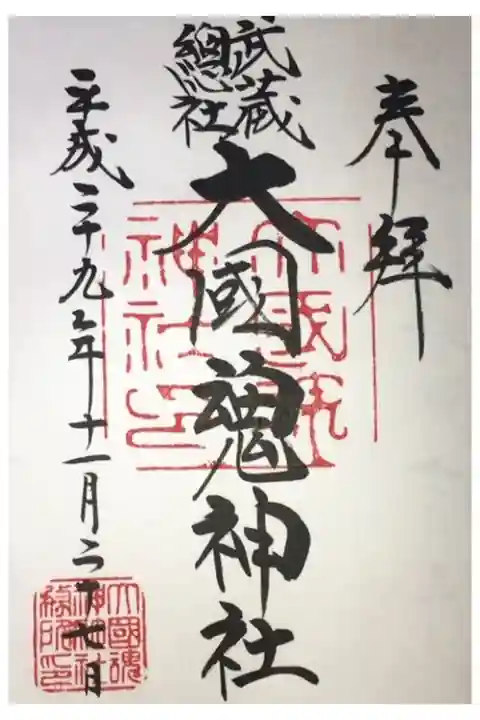 奉拝
武蔵
總社
大國魂神社
平成二十九年十一月二十七日
大國魂
神社印
大國魂
神社